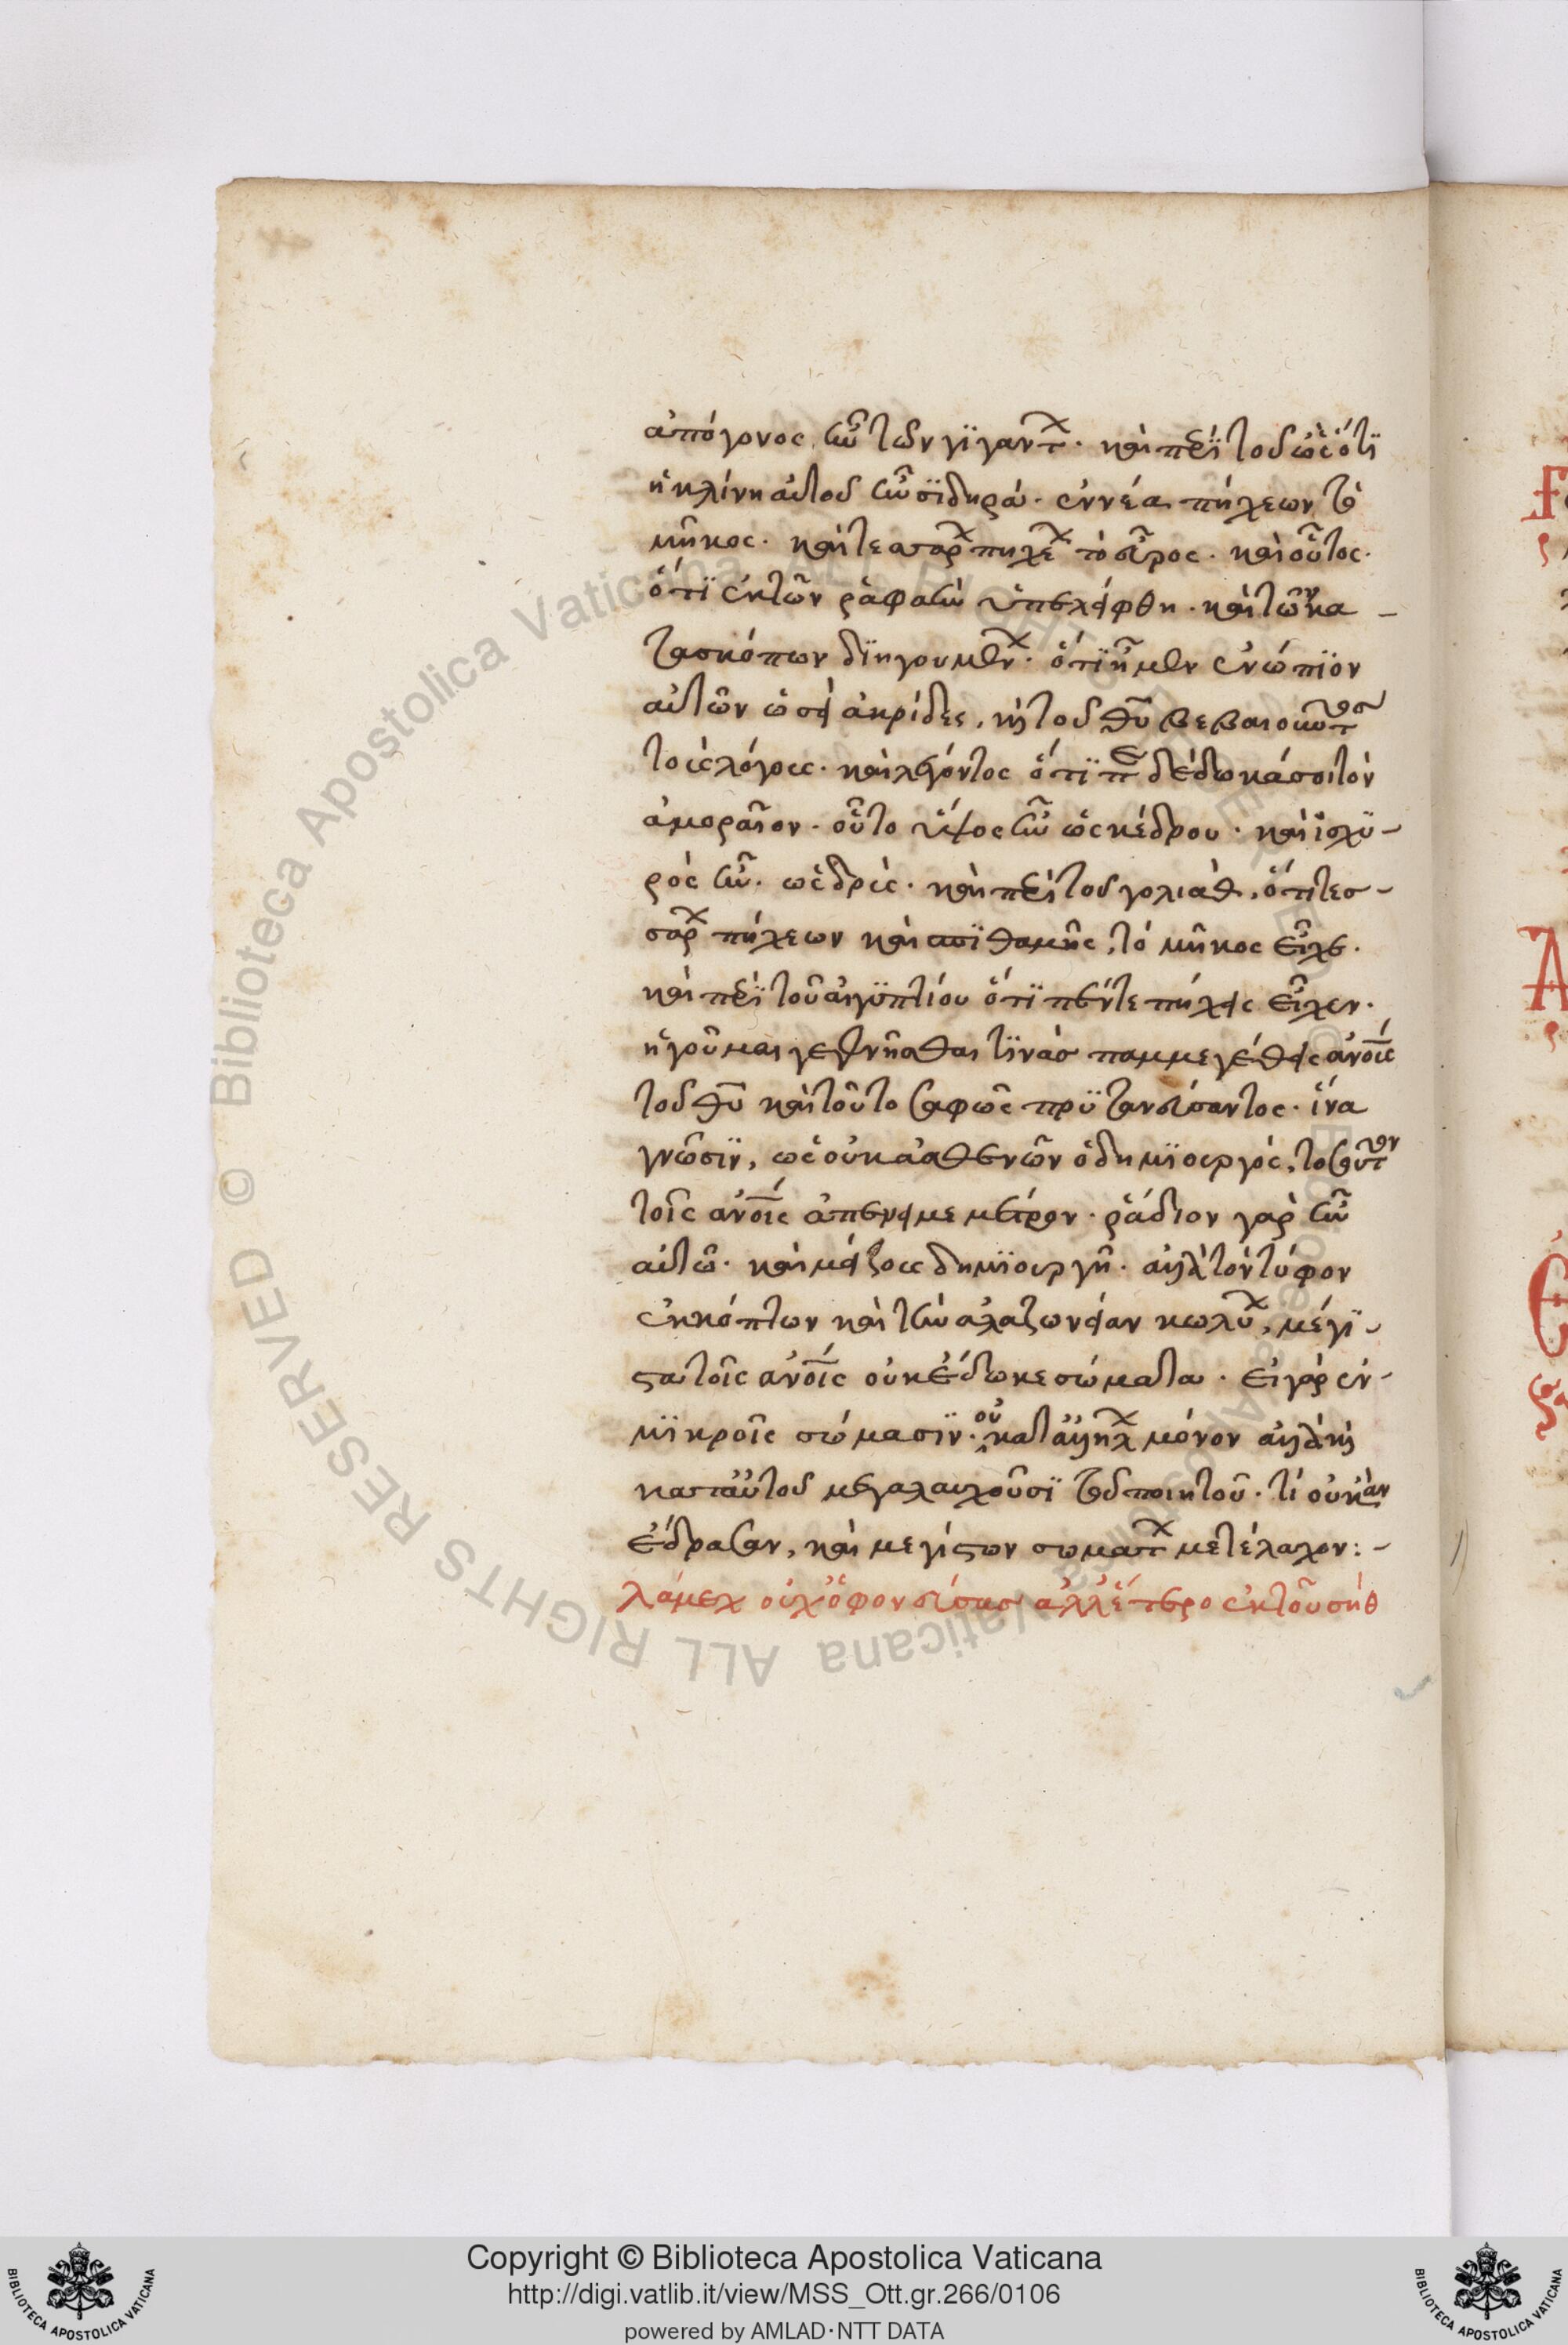 ἀπόγονος ἦν τῶν γϊγάντων. καὶ περὶ τοῦ ὢγ ὅτϊ
ἡ κλίνη αὐτοῦ ἦν σϊδηρὰ. ἐννέα πήχεων τὸ
μῆκος. καὶ τεσσάρων πήχεων τὸ εὖρος. καὶ οὗτος.
ὅτϊ ἐκ τῶν ῥαφαῒν ὑπελείφθη. καὶ τῶν κα-
τασκόπων δϊηγουμένων. ὅτϊ ἦμεν ἐνώπϊον
αὐτῶν ὡσεὶ ἀκρίδες, καὶ τοῦ θῦ βεβαιοῦντος
τοὺς λόγους. καὶ λέγοντος ὅτϊ παραδέδωκά σοι τὸν
ἀμοραῖον. οὗ τὸ ὕψος ἦν ὡς κέδρου. καὶ ἰσχϋ-
ρὸς ἦν. ὡς δρῦς. καὶ περὶ τοῦ γολιὰθ, ὅτι τεσ-
σάρων πήχεων καὶ σπϊθαμῆς, τὸ μῆκος εἶχε.
καὶ περὶ τοῦ αἰγϋπτίου ὅτϊ πέντε πήχεις εἶχεν.
ἡγοῦμαι γεγενῆσθαι τϊνὰσ παμμεγέθεις ἀνοῖς
τοῦ θῦ καὶ τοῦτο σαφῶς πρϋτανεύσαντος. ἵνα
γνῶσϊν, ὡς οὐκ ἀσθενῶν ὁ δημϊουργός, τοσοῦτον
τοῖς ἀνοῖς ἀπένειμε μέτρον. ῥάδιον γὰρ ἦν
αὐτῶ. καὶ μείζους δημϊουργῆσαι. ἀλλὰ τὸν τύφον
ἐκκόπτων καὶ τὴν ἀλαζονείαν κωλύων, μέγϊ-
στα τοῖς ἀνοῖς οὐκ ἔδωκε σώματα. εἰ γὰρ ἐν
μϊκροῖς σώμασϊν. οὐ κατ' ἀλλήλων μόνον ἀλλὰ καὶ
κατ' αὐτοῦ μεγαλαυχοῦσϊ τοῦ ποιητοῦ. τί οὐκ ἂν
ἔδρασαν, καὶ μεγίστων σωμάτων μετέλαχον:-
λάμεχ οὐχ ὁ φονεύσασ ἀλλ' ἕτερος ἐκ τοῦ σήθ
Copyright © Biblioteca Apostolica Vaticana
http://digi.vatlib.it/view/MSS_Ott.gr.266/0106
powered by AMLAD·NTT DATA
BIBLIOTECA APOSTOLICA VATICANA
BIBLIOTECA APOSTOLICA VATICANA